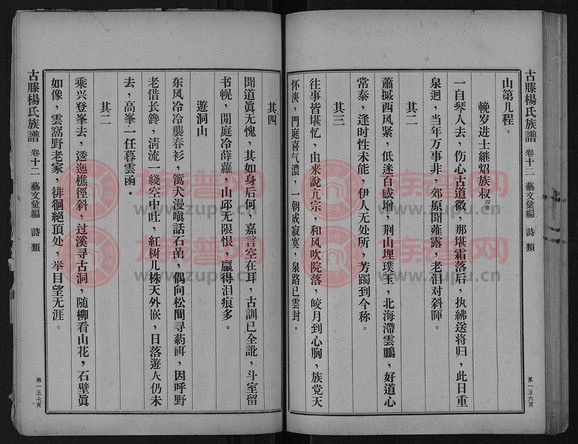 古滕楊氏族譜 卷十二 藝文彙編 詩類
山第几程。
輓岁进士繼炤族叔
一自琴人去，伤心古道微，那堪霜落后，执紼送将归，此日重
泉迥，当年万事非，郊原聞薤露，老泪对斜暉。
其二
蕭摵西风紧，低迷百感增，荆山埋璞玉，北海滯雲鵬，好道心
常泰，逢时性未能，伊人无处所，芳躅到今称。
其三
往事皆堪忆，由来説亢宗，和风吹院落，皎月到心胸，族党天
怀浃，門庭喜气濃，一朝成寂寞，泉路已雲封。
第一五六頁
其四
聞道眞无愧，其如身已何，嘉言空在耳，古訓已全訛，斗室留
书幌，閒庭冷薜蘿，山邱无限恨，贏得泪痕多。
遊洞山
东风冷冷襲春衫，篱犬漫嗔話石嵒，偶向松間寻葯餌，因呼野
老借长鑱，清流一綫空中吐，紅树几株天外嵌，日落遊人仍未
去，高峯一任暮雲函。
其二
乘兴登峯去，逶迤樵徑斜，过溪寻古洞，随柳看山花，石壁眞
如像，雲窩野老家，徘徊絕頂处，举目望无涯。
古滕楊氏族譜 卷十二 藝文彙編 詩類
第一五七頁